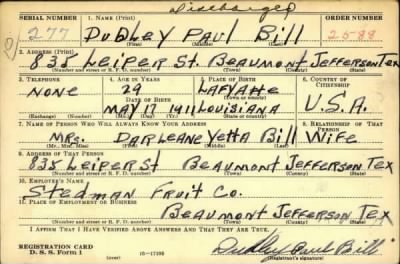 Discharged
SERIAL NUMBER 1. NAME (Print) ORDER NUMBER
277 DUDLEY PAUL Bill 2588
(First) (Middle) (Last)
2. ADDRESS (Print)
835 Leiper St. BEAUMONT JEFFERSON TEX
(Number and street or R. F. D. number) (Town) (County) (State)
3. TELEPHONE 4. AGE IN YEARS 5. PLACE OF BIRTH 6. COUNTRY OF CITIZENSHIP
NONE 29 LAFYATTE
DATE OF BIRTH (Town or county)
MAY 17 1911 LOUISIANA U.S.A.
(Exchange) (Number) (Mo.) (Day) (Yr.) (State or country)
7. NAME OF PERSON WHO WILL ALWAYS KNOW YOUR ADDRESS 8. RELATIONSHIP OF THAT PERSON
MRS. DARLEANE Yetta Bill Wife
(Mr., Mrs., Miss) (First) (Middle) (Last)
9. ADDRESS OF THAT PERSON
835 Leiper St BEAUMONT JEFFERSON TEX
(Number and street or R. F. D. number) (Town) (County) (State)
10. EMPLOYER'S NAME
Stedman Fruit Co.
11. PLACE OF EMPLOYMENT OR BUSINESS
BEAUMONT JEFFERSON TEX
(Number and street or R. F. D. number) (Town) (County) (State)
I AFFIRM THAT I HAVE VERIFIED ABOVE ANSWERS AND THAT THEY ARE TRUE.
REGISTRATION CARD
D. S. S. Form 1 (over) 16-17105 Dudley Paul Bill
(Registrant's signature)